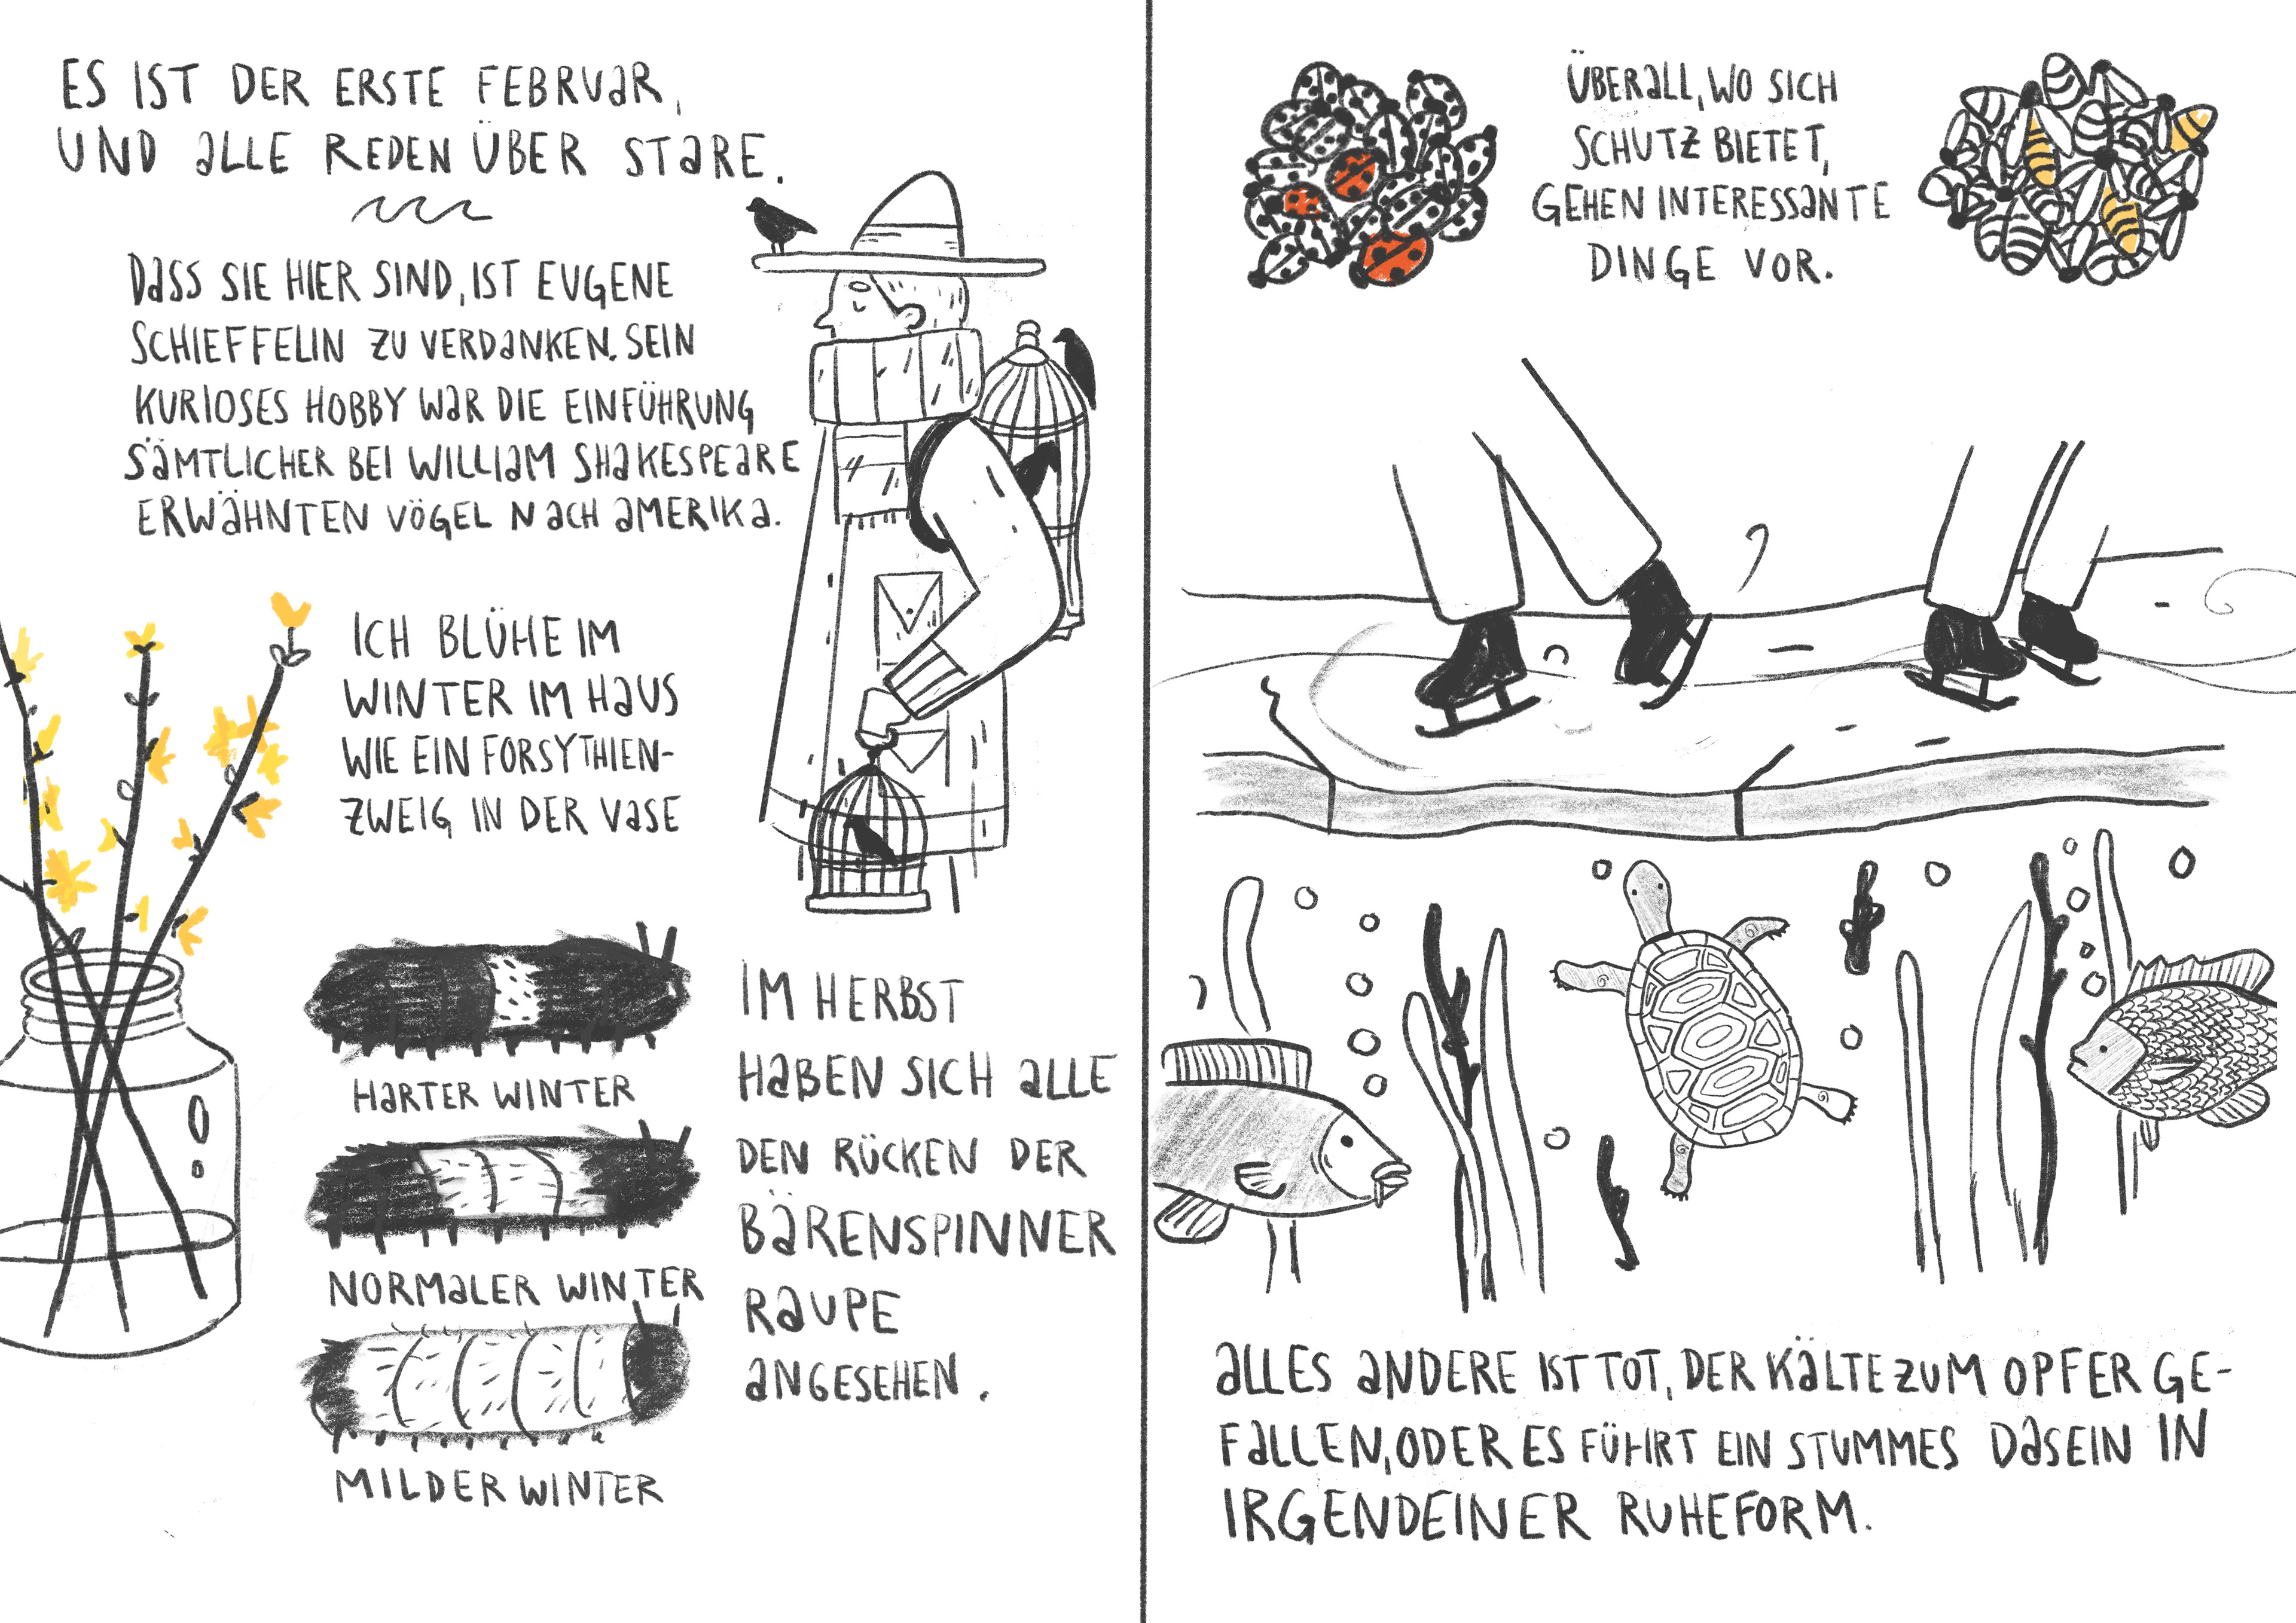 ES IST DER ERSTE FEBRUAR,
UND ALLE REDEN ÜBER STARE.
DASS SIE HIER SIND, IST EUGENE
SCHIEFFELIN ZU VERDANKEN. SEIN
KURIOSES HOBBY WAR DIE EINFÜHRUNG
SÄMTLICHER BEI WILLIAM SHAKESPEARE
ERWÄHNTEN VÖGEL NACH AMERIKA.
ICH BLÜHE IM
WINTER IM HAUS
WIE EIN FORSYTHIEN-
ZWEIG IN DER VASE
HARTER WINTER
NORMALER WINTER
MILDER WINTER
IM HERBST
HABEN SICH ALLE
DEN RÜCKEN DER
BÄRENSPINNER
RAUPE
ANGESEHEN.
ÜBERALL, WO SICH
SCHUTZ BIETET,
GEHEN INTERESSANTE
DINGE VOR.
ALLES ANDERE IST TOT, DER KÄLTE ZUM OPFER GE-
FALLEN, ODER ES FÜHRT EIN STUMMES DASEIN IN
IRGENDEINER RUHEFORM.